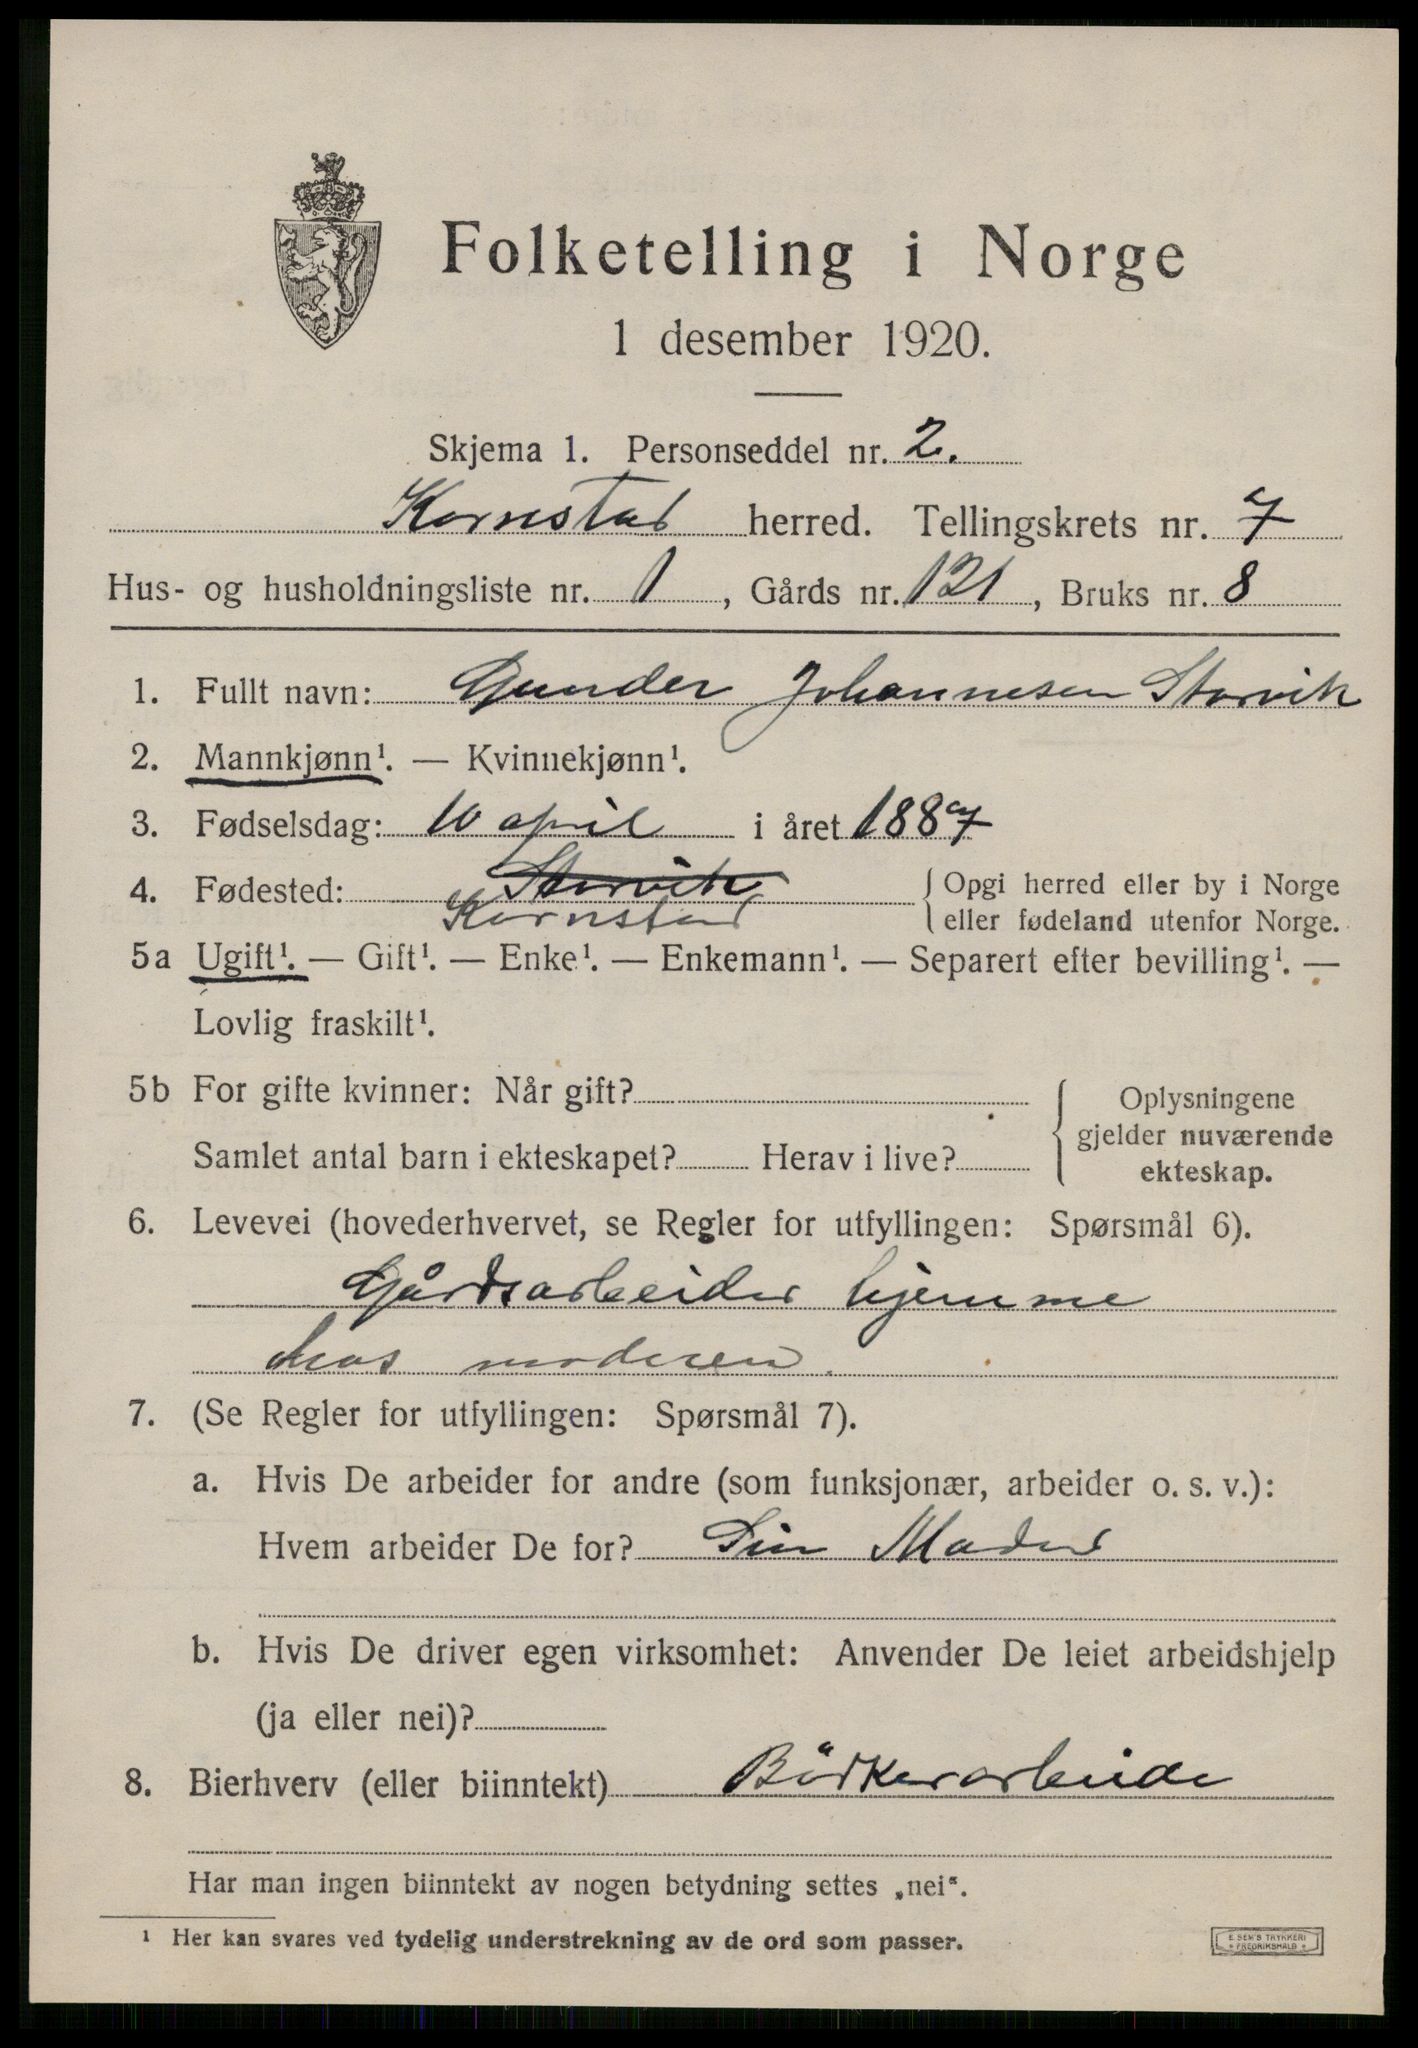 Folketelling i Norge
1 desember 1920.
Skjema 1. Personseddel nr. 2.
Kornstad herred. Tellingskrets nr. 7
Hus- og husholdningsliste nr. 1, Gårds nr. 121, Bruks nr. 8
1. Fullt navn: Gunder Johannesen Storvik
2. Mannkjønn¹. — Kvinnekjønn¹.
3. Fødselsdag: 10 april i året 1887
4. Fødested: Storvik { Opgi herred eller by i Norge
Kornstad eller fødeland utenfor Norge.
5a Ugift¹. — Gift¹. — Enke¹. — Enkemann¹. — Separert efter bevilling¹. —
Lovlig fraskilt¹.
5b For gifte kvinner: Når gift? { Oplysningene
gjelder nuværende
Samlet antal barn i ekteskapet? Herav i live? ekteskap.
6. Levevei (hovederhvervet, se Regler for utfyllingen: Spørsmål 6).
Gårdsarbeider hjemme
hos moderen.
7. (Se Regler for utfyllingen: Spørsmål 7).
a. Hvis De arbeider for andre (som funksjonær, arbeider o. s. v.):
Hvem arbeider De for? Sin Moder
b. Hvis De driver egen virksomhet: Anvender De leiet arbeidshjelp
(ja eller nei)?
8. Bierhverv (eller biinntekt) Bödkerarbeide
Har man ingen biinntekt av nogen betydning settes „nei“.
¹ Her kan svares ved tydelig understrekning av de ord som passer.
E. SEM'S TRYKKERI
FREDRIKSHALD